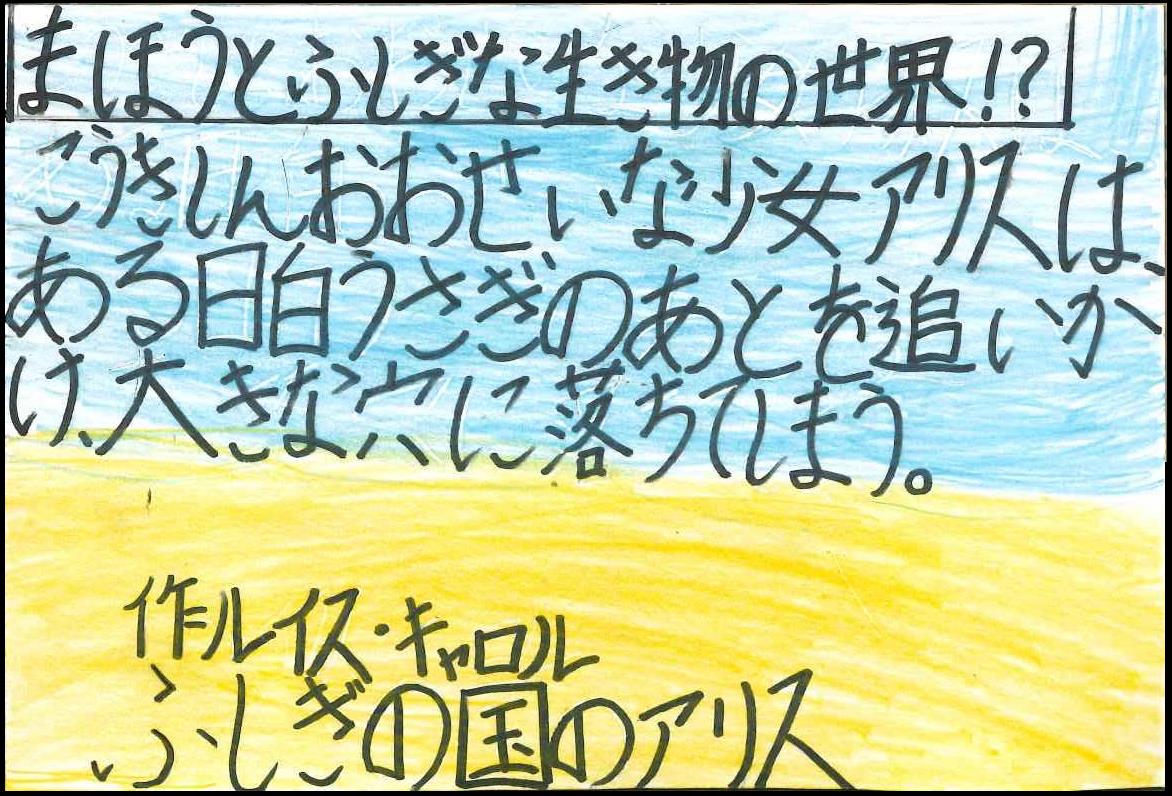 まほうとふしぎな生き物の世界!?
こうきしんおおせいな少女アリスは、
ある日白うさぎのあとを追いか
け、大きな穴に落ちてしまう。
作ルイス・キャロル
ふしぎの国のアリス